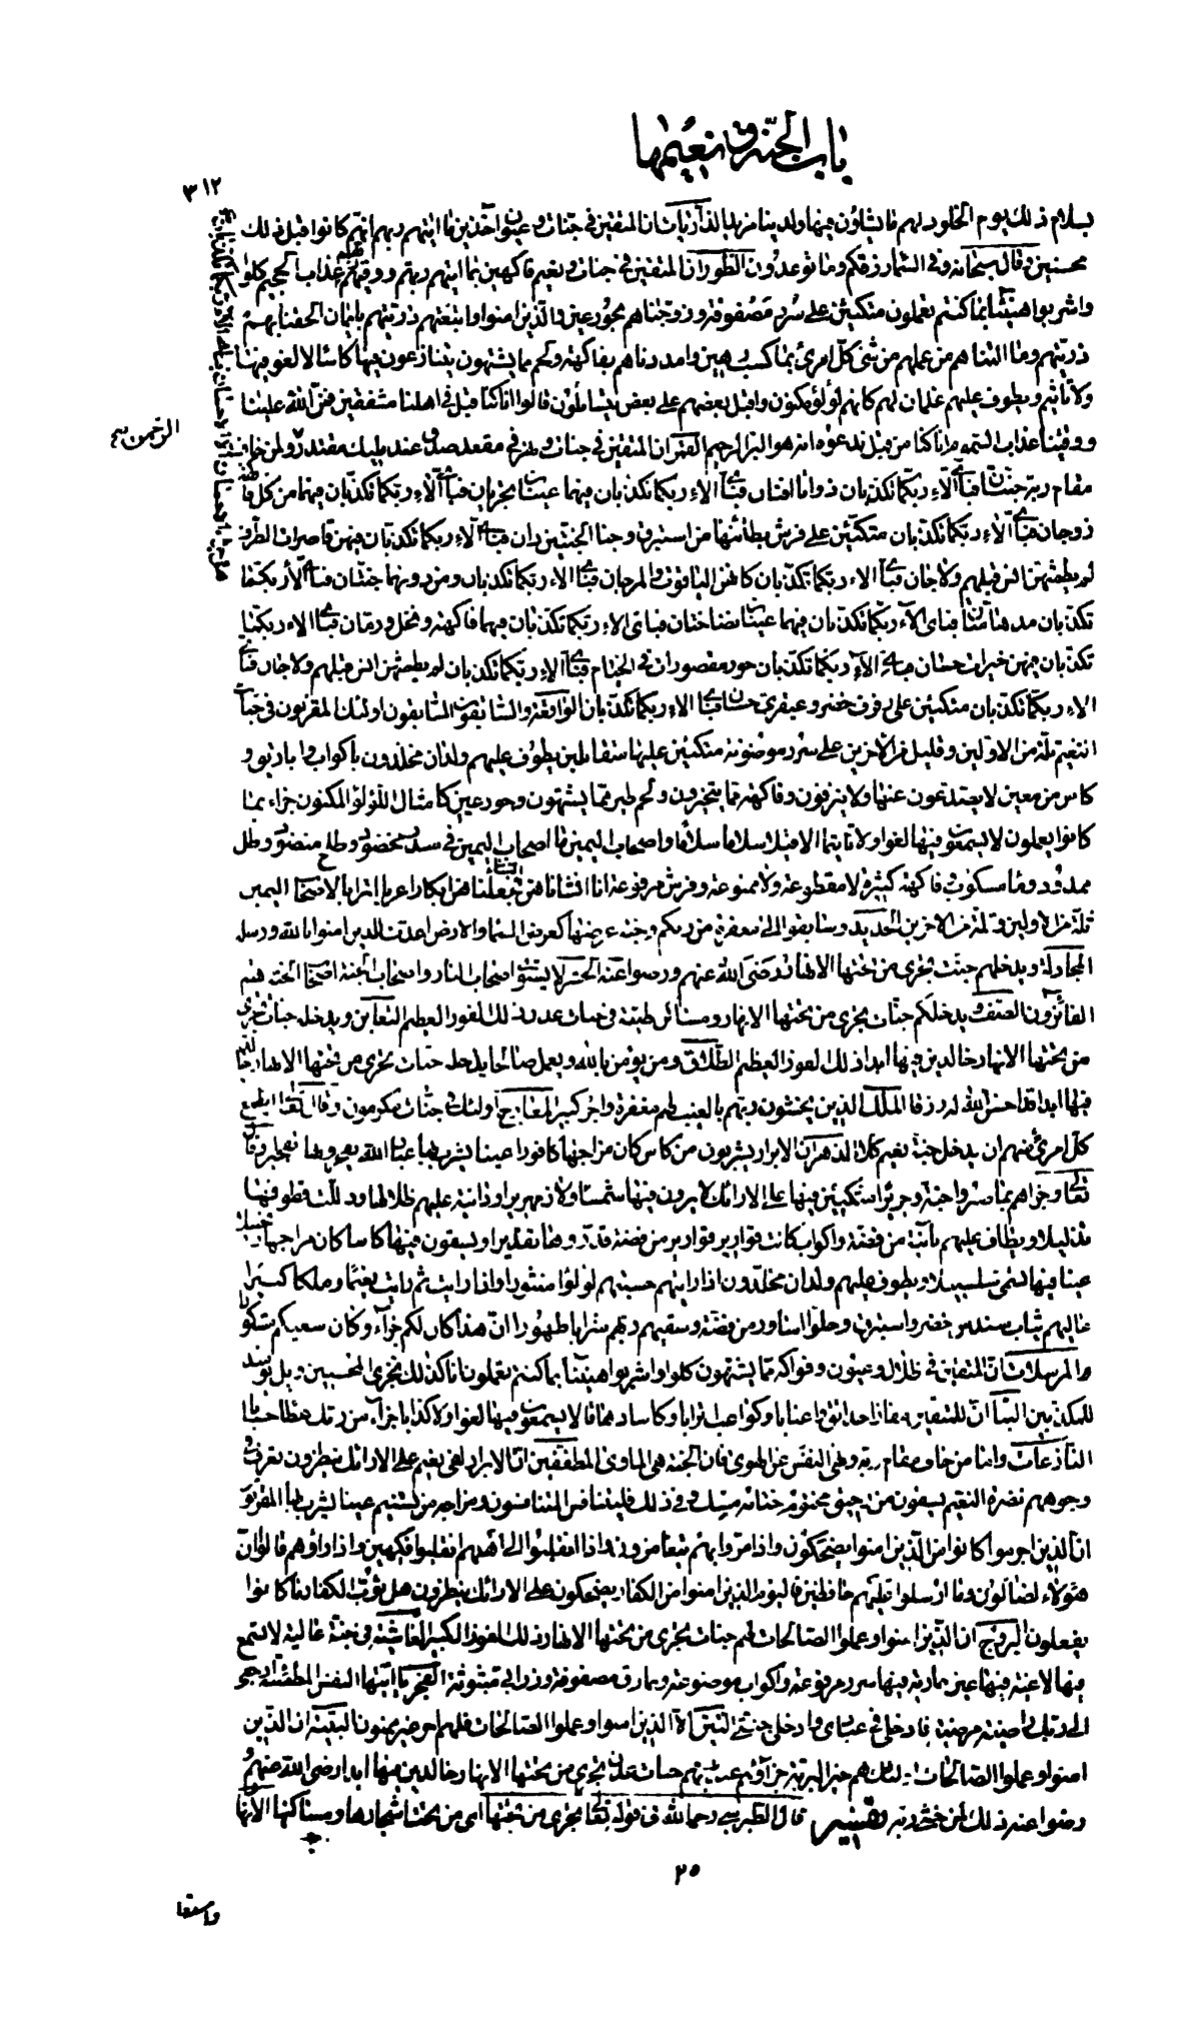 باب الجنة ونعيمها
٣١٢
بسلام ذلك يوم الخلود لهم ما يشاؤن فيها ولدينا مزيد الذاريات ان المتقين في جنات وعيون آخذين ما اتيهم ربهم انهم كانوا قبل ذلك
محسنين وقال سبحانه وفي السماء رزقكم وما توعدون الطور ان المتقين في جنات ونعيم فاكهين بما اتيهم ربهم ووقيهم ربهم عذاب الجحيم كلوا
واشربوا هنيئا بما كنتم تعملون متكئين على سرر مصفوفة وزوجناهم بحور عين والذين امنوا واتبعتهم ذريتهم بايمان الحقنا بهم
ذريتهم وما التناهم من عملهم من شئ كل امرئ بما كسب رهين وامددناهم بفاكهة ولحم مما يشتهون يتنازعون فيها كاسا لا لغو فيها
ولا تاثيم ويطوف عليهم غلمان لهم كانهم لؤلؤ مكنون واقبل بعضهم على بعض يتسائلون قالوا انا كنا قبل في اهلنا مشفقين فمن الله علينا
ووقينا عذاب السموم انا كنا من قبل ندعوه انه هو البر الرحيم القمر ان المتقين في جنات ونهر في مقعد صدق عند مليك مقتدر ولمن خاف
الرحمن
مقام ربه جنتان فباى آلاء ربكما تكذبان ذواتا افنان فباى آلاء ربكما تكذبان فيهما عينان تجريان فباى آلاء ربكما تكذبان فيهما من كل فاكهة
زوجان فباى آلاء ربكما تكذبان متكئين على فرش بطائنها من استبرق وجنا الجنتين دان فباى آلاء ربكما تكذبان فيهن قاصرات الطرف
لم يطمثهن انس قبلهم ولا جان فباى آلاء ربكما تكذبان كانهن الياقوت والمرجان فباى آلاء ربكما تكذبان ومن دونهما جنتان فباى آلاء ربكما
تكذبان مدهامتان فباى آلاء ربكما تكذبان فيهما عينان نضاختان فباى الاء ربكما تكذبان فيهما فاكهة ونخل ورمان فباى الاء ربكما
تكذبان فيهن خيرات حسان فباى الاء ربكما تكذبان حور مقصورات في الخيام فباى آلاء ربكما تكذبان لم يطمثهن انس قبلهم ولا جان فباى
الاء ربكما تكذبان متكئين على رفرف خضر وعبقرى حسان فباى الاء ربكما تكذبان الواقعة والسابقون السابقون اولئك المقربون في جنات
النعيم ثلة من الاولين وقليل من الآخرين على سرر موضونة متكئين عليها متقابلين يطوف عليهم ولدان مخلدون باكواب واباريق و
كاس من معين لا يصدعون عنها ولا ينزفون وفاكهة مما يتخيرون ولحم طير مما يشتهون وحور عين كامثال اللؤلؤ المكنون جزاء بما
كانوا يعملون لا يسمعون فيها لغوا ولا تاثيما الا قيلا سلاما سلاما واصحاب اليمين ما اصحاب اليمين في سدر مخضود وطلح منضود وظل
ممدود وماء مسكوب وفاكهة كثيرة لا مقطوعة ولا ممنوعة وفرش مرفوعة انا انشاناهن انشاء فجعلناهن ابكارا عربا اترابا لاصحاب اليمين
ثلة من الاولين وثلة من الاخرين الحديد وسابقوا الى مغفرة من ربكم وجنة عرضها كعرض السماء والارض اعدت للذين امنوا بالله ورسله
المجادلة ويدخلهم جنات تجرى من تحتها الانهار رضى الله عنهم ورضوا عنه الحشر لا يستوى اصحاب النار واصحاب الجنة اصحاب الجنة هم
الفائزون الصف ويدخلكم جنات تجرى من تحتها الانهار ومساكن طيبة في جنات عدن ذلك الفوز العظيم التغابن ويدخله جنات تجرى
من تحتها الانهار خالدين فيها ابدا ذلك الفوز العظيم الطلاق ومن يؤمن بالله ويعمل صالحا يدخله جنات تجرى من تحتها الانهار خالدين
فيها ابدا قد احسن الله له رزقا الملك الذين يخشون ربهم بالغيب لهم مغفرة واجر كبير المعارج اولئك في جنات مكرمون وقال تعالى ايطمع
كل امرئ منهم ان يدخل جنة نعيم كلا الدهر ان الابرار يشربون من كاس كان مزاجها كافورا عينا يشرب بها عباد الله يفجرونها تفجيرا وقال
تعالى وجزاهم بما صبروا جنة وحريرا متكئين فيها على الارائك لا يرون فيها شمسا ولا زمهريرا ودانية عليهم ظلالها وذللت قطوفها
تذليلا ويطاف عليهم بآنية من فضة واكواب كانت قوارير قوارير من فضة قدروها تقديرا ويسقون فيها كاسا كان مزاجها زنجبيلا
عينا فيها تسمى سلسبيلا ويطوف عليهم ولدان مخلدون اذا رايتهم حسبتهم لؤلؤا منثورا واذا رايت ثم رايت نعيما وملكا كبيرا
عاليهم ثياب سندس خضر واستبرق وحلوا اساور من فضة وسقيهم ربهم شرابا طهورا ان هذا كان لكم جزآء وكان سعيكم مشكورا
والمرسلات ان المتقين في ظلال وعيون وفواكه مما يشتهون كلوا واشربوا هنيئا بما كنتم تعملون انا كذلك نجزى المحسنين ويل يومئذ
للمكذبين النبا ان للمتقين مفازا حدائق واعنابا وكواعب اترابا وكاسا دهاقا لا يسمعون فيها لغوا ولا كذابا جزآء من ربك عطاء حسابا
النازعات واما من خاف مقام ربه ونهى النفس عن الهوى فان الجنة هي الماوى المطففين ان الابرار لفى نعيم على الارائك ينظرون تعرف في
وجوههم نضرة النعيم يسقون من رحيق مختوم ختامه مسك وفي ذلك فليتنافس المتنافسون ومزاجه من تسنيم عينا يشرب بها المقربون
ان الذين اجرموا كانوا من الذين امنوا يضحكون واذا مروا بهم يتغامزون واذا انقلبوا الى اهلهم انقلبوا فكهين واذا راوهم قالوا ان
هؤلاء لضالون وما ارسلوا عليهم حافظين فاليوم الذين امنوا من الكفار يضحكون على الارائك ينظرون هل ثوب الكفار ما كانوا
يفعلون البروج ان الذين امنوا وعملوا الصالحات لهم جنات تجرى من تحتها الانهار ذلك الفوز الكبير الغاشية في جنة عالية لا تسمع
فيها لاغية فيها عين جارية فيها سرر مرفوعة واكواب موضوعة ونمارق مصفوفة وزرابى مبثوثة الفجر يا ايتها النفس المطمئنة ارجعى
الى ربك راضية مرضية فادخلى في عبادى وادخلى جنتى التين الا الذين امنوا وعملوا الصالحات فلهم اجر غير ممنون البينة ان الذين
امنوا وعملوا الصالحات اولئك هم خير البرية جزآؤهم عند ربهم جنات عدن تجرى من تحتها الانهار خالدين فيها ابدا رضى الله عنهم
ورضوا عنه ذلك لمن خشى ربه تفسير قال الطبرسى رحمه الله في قوله تعالى تجرى من تحتها اى من تحت اشجارها ومساكنها الانهار
٢٥